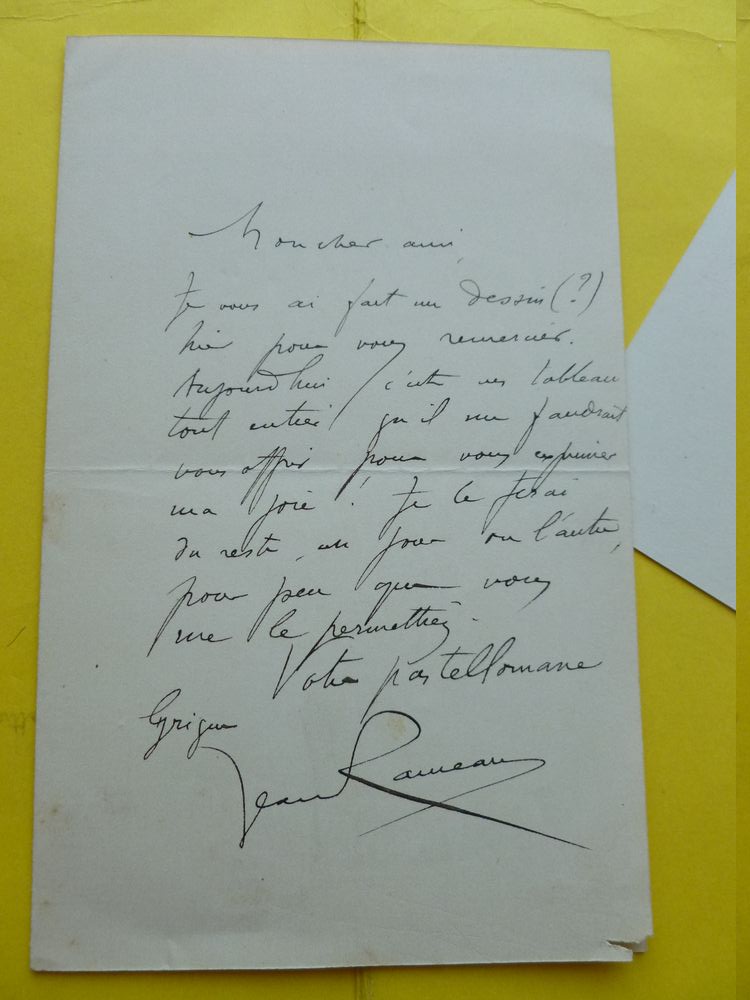 Mon cher ami,
Je vous ai fait un dessin (?)
hier pour vous remercier.
Aujourd'hui c'est un tableau
tout entier qu'il me faudrait
vous offrir pour vous exprimer
ma joie ! Je le ferai
du reste, un jour ou l'autre,
pour peu que vous
me le permettiez.
Votre pastellomane
lyrique
Jean Rameau